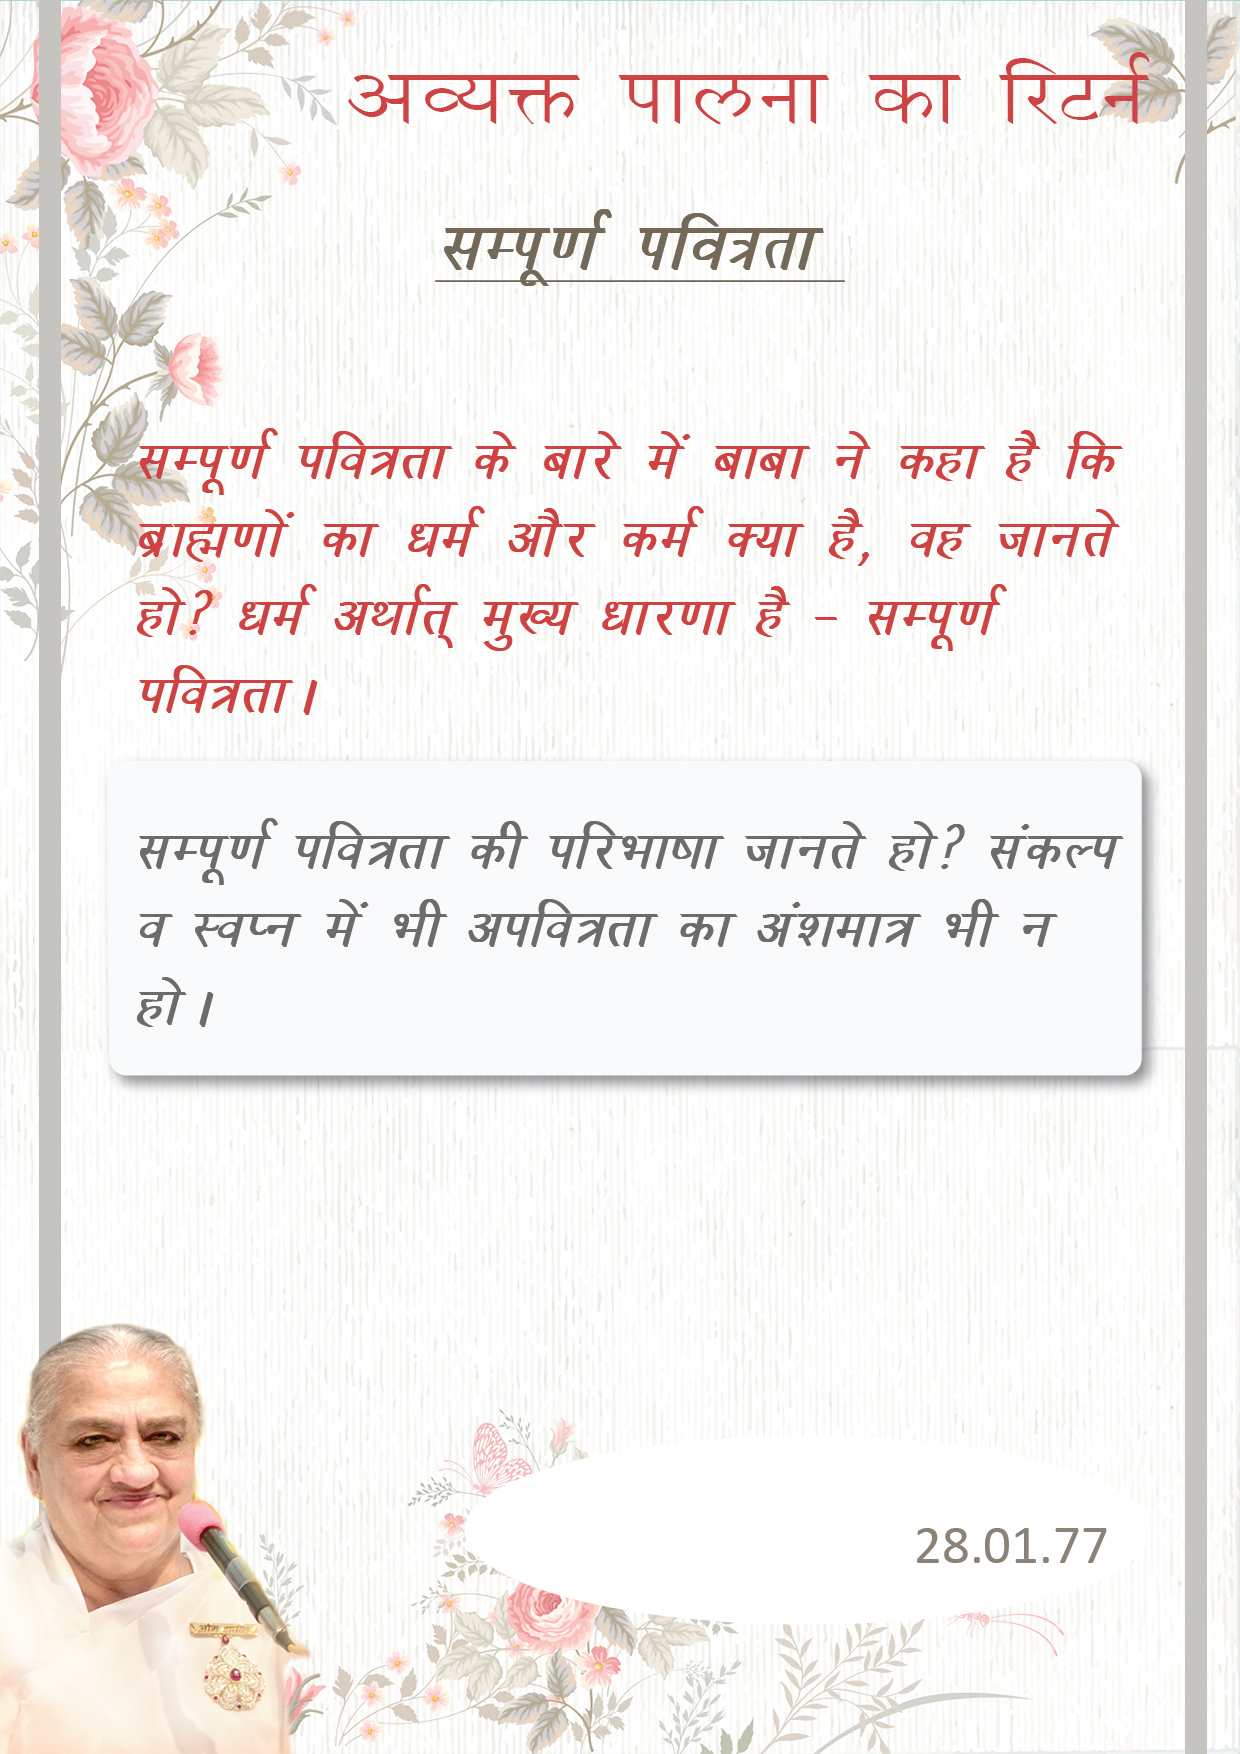 अव्यक्त पालना का रिटर्न
सम्पूर्ण पवित्रता
सम्पूर्ण पवित्रता के बारे में बाबा ने कहा है कि
ब्राह्मणों का धर्म और कर्म क्या है, वह जानते
हो? धर्म अर्थात् मुख्य धारणा है – सम्पूर्ण
पवित्रता।
सम्पूर्ण पवित्रता की परिभाषा जानते हो? संकल्प
व स्वप्न में भी अपवित्रता का अंशमात्र भी न
हो।
28.01.77